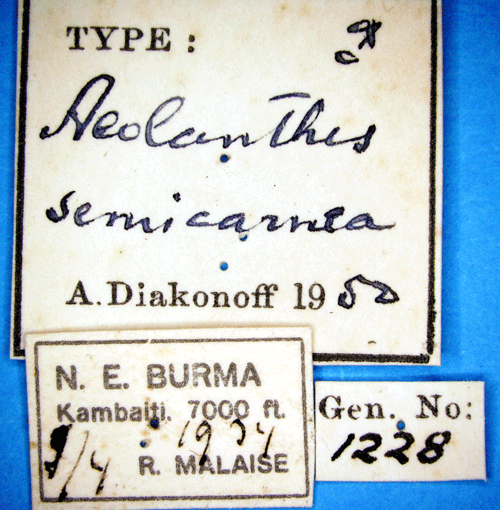 TYPE :
Aeolanthes
semicarnea
A. Diakonoff 1950
N. E. BURMA
Kambaiti. 7000 ft.
9/4 1934
R. MALAISE
Gen. No:
1228